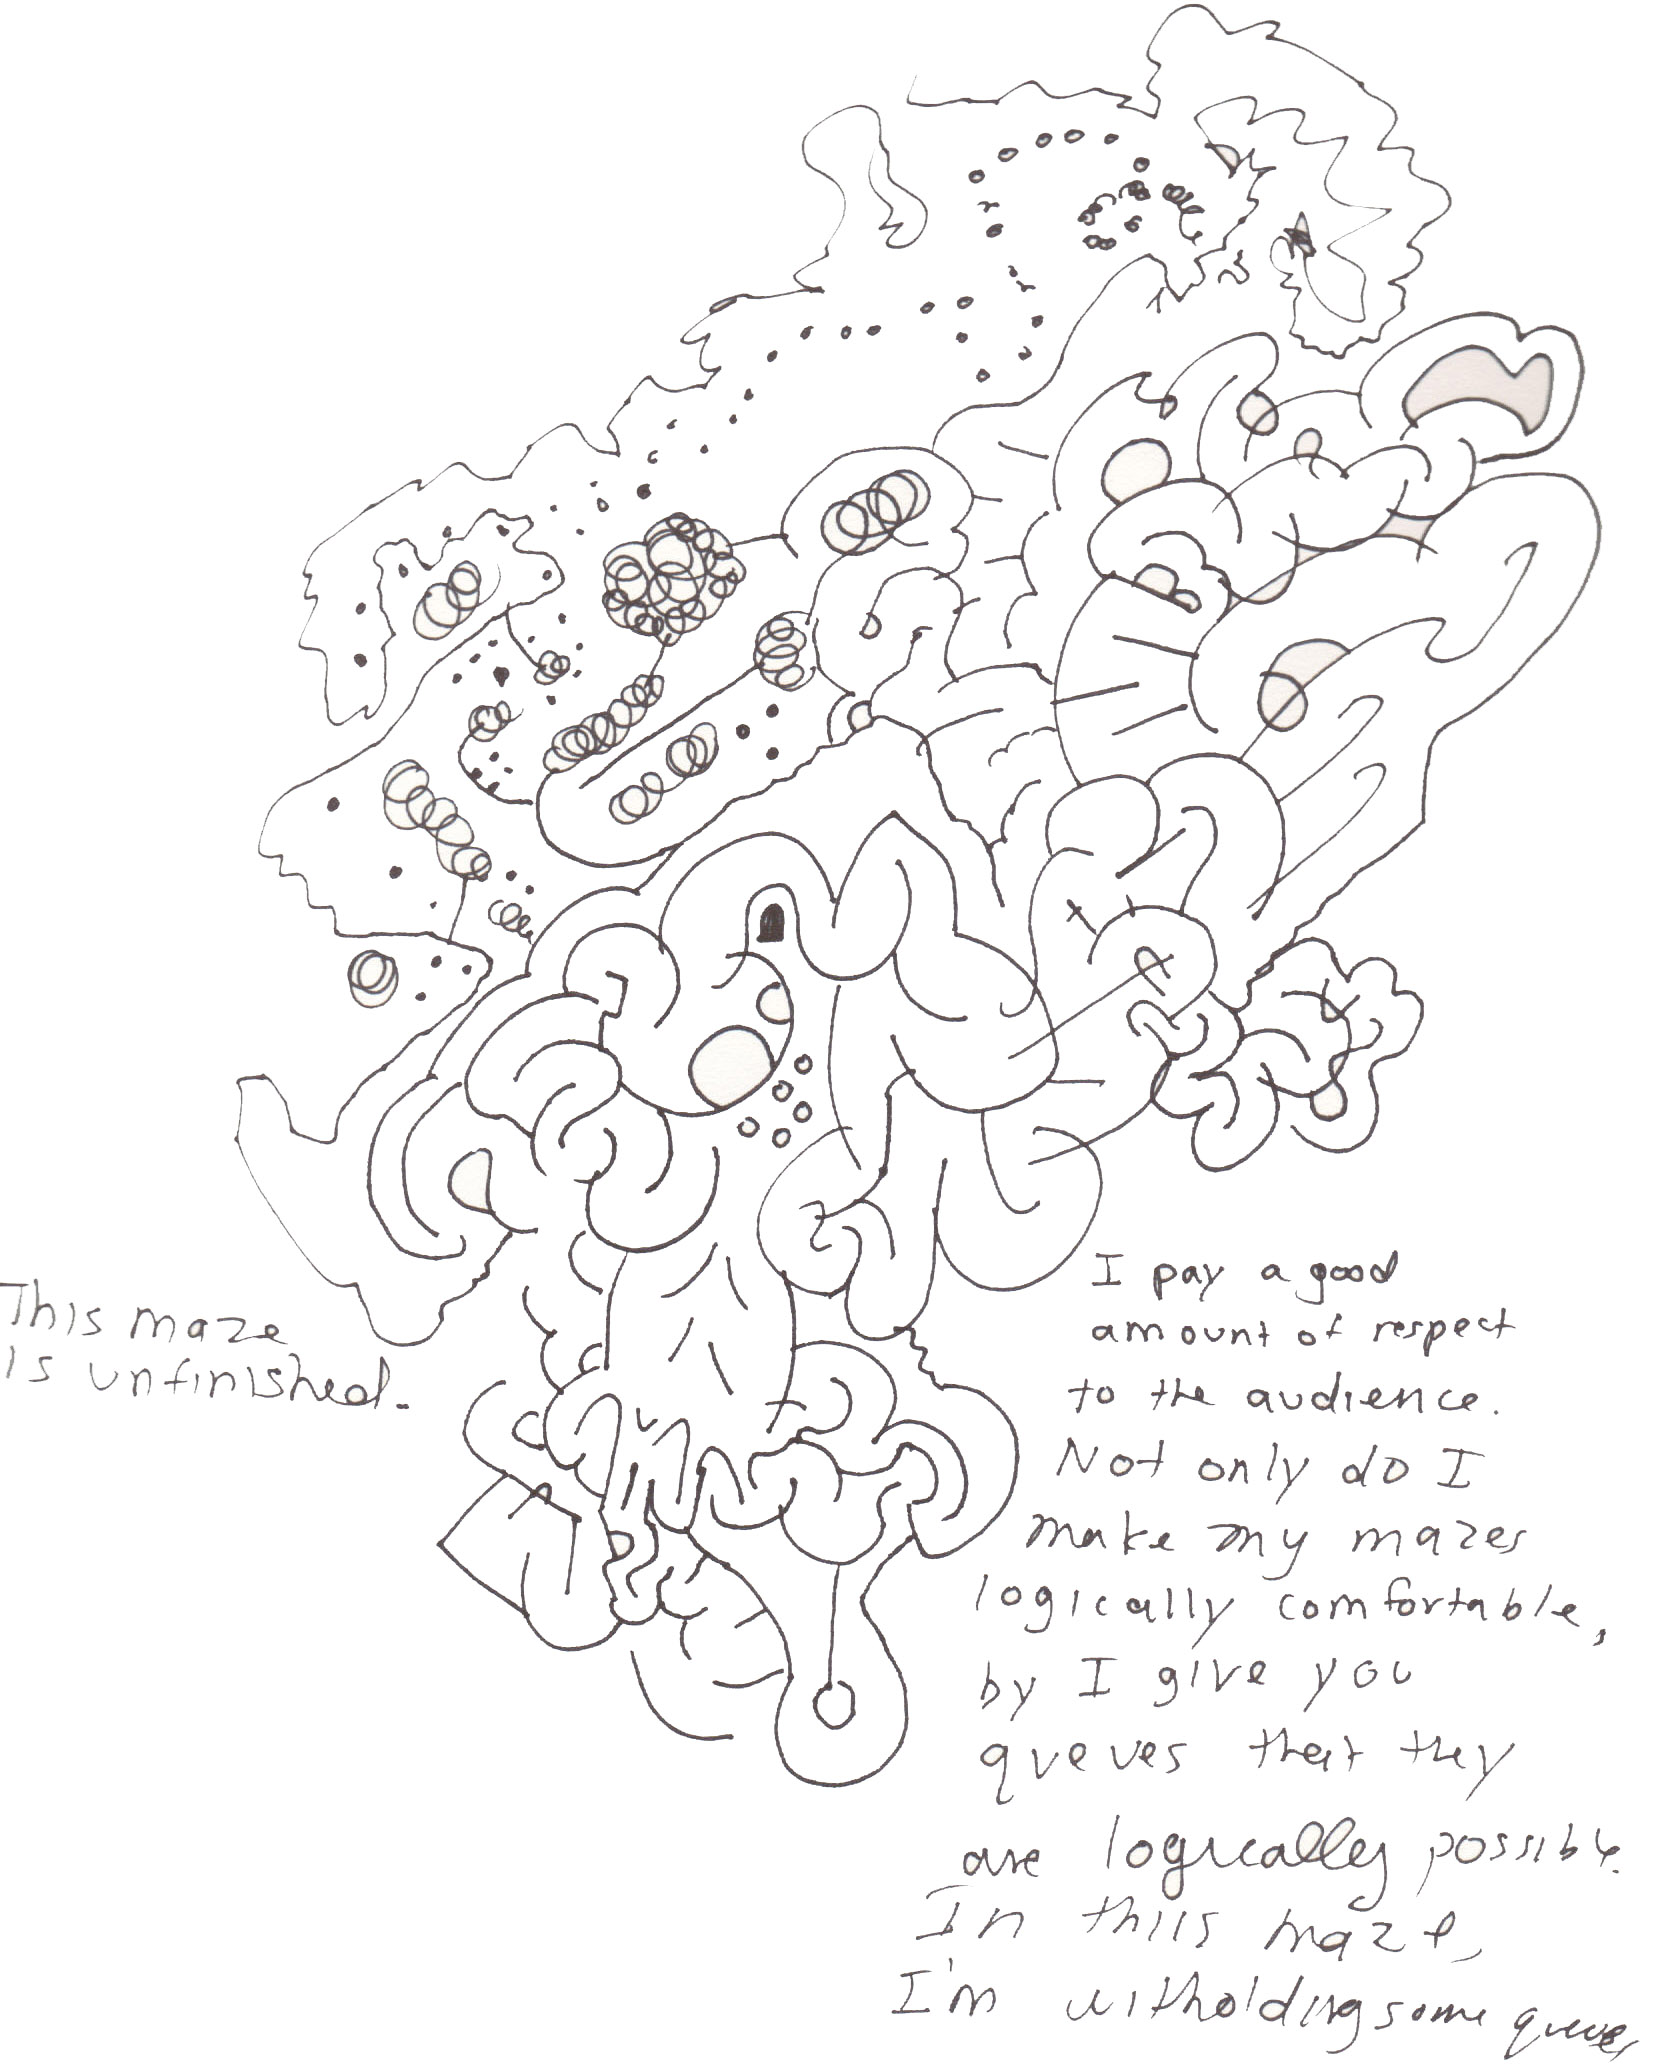 This maze
is unfinished.
I pay a good
amount of respect
to the audience.
Not only do I
make my mazes
logically comfortable,
by I give you
queues that they
are logically possible.
In thiis maze,
I'm witholding some queues